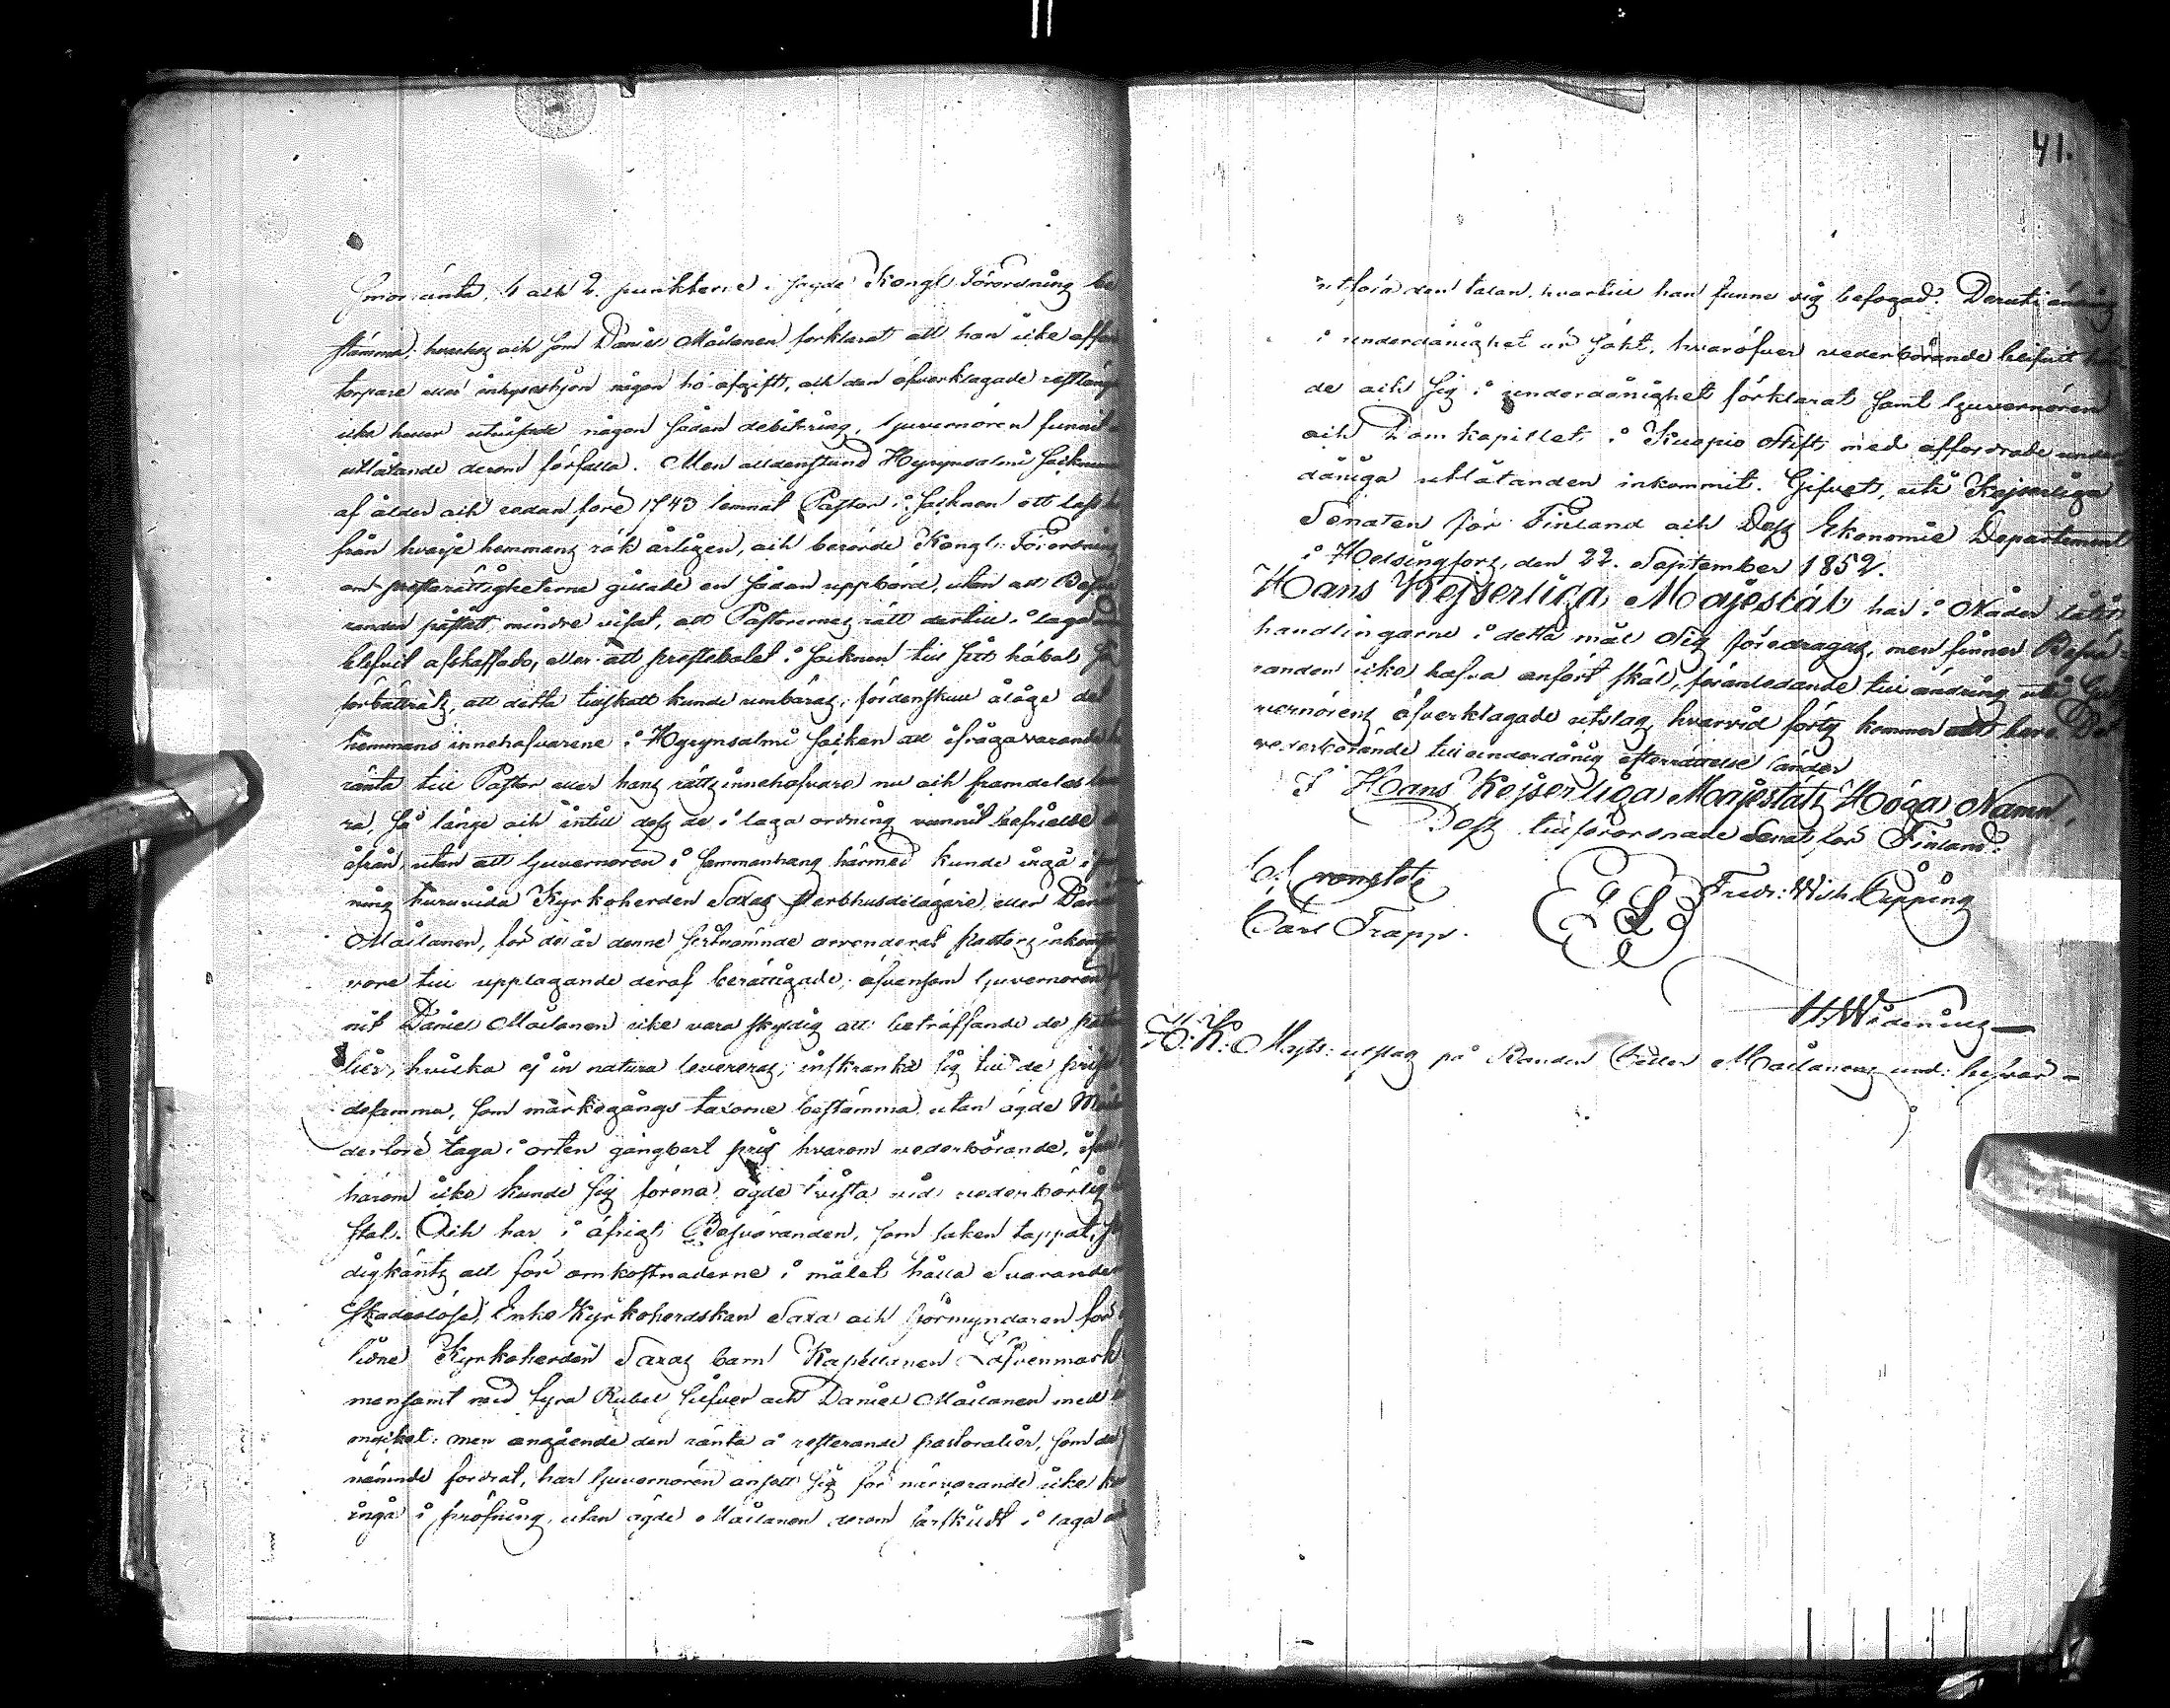 Smörränta, 1 och 2. punkterne i sagde Kongl. Förordning be
stämma; hvarhos och som Daniel Mäilanen förklarat att han icke affor
torpare eller inhyseshjon någon hö afgift, och den öfverklagade restläng
icke heller utvisade någon sådan debitering, Guvernören funnit
utlåtande derom förfalla. Men alldenstund Hyrynsalmi Socknen
af ålder och redan före 1743 lemnat Pastor i Socknen ett lass hö
från hvarje hemmans rök årligen, och berörde Kongl. Förordning
om prestarättigheterne gillade en sådan uppbörd, utan att Besvä
randen påstått, mindre visat, att Pastorernes rätt dertill i laga
blifvit afskaffad, eller att prestebolet i Socknen till sitt höbol så
förbättrats, att detta tillskott kunde umbäras; fördenskull ålåge det
hemmans innehafvarene i Hyrynsalmi Socken att ifrågavarande hö
ränta till Pastor eller hans rätts innehafvare nu och framdeles leve
ra, så länge och intill dess de i laga ordning vunnit befrielse
ifrån, utan att Guvernören i sammanhang härmed kunde ingå i
ning huruvida Kyrkoherden Saxas sterbhusdelägare, eller Daniel
Mäilanen, för de år denne sistnämnde arrenderat pastors inkomste
vore till upptagande deraf berättigade; äfvensom Guvernören
nit Daniel Mäilanen icke vara skyldig att beträffande de pasto
lier, hvilka ej in natura levereras, inskränka sig till de pris
desamma, som markegångs taxorne bestämma, utan ägde Mäila
derföre taga i orten gångbart pris hvarom vederbörande, ifall
härom icke kunde sig förena, ägde tvista vid vederbörlig
stol. Och har i öfrigt Besväranden, som saken tappat,
digkänts att för omkostnaderne i målet hålla Svaranden
skadeslöse, Enke Kyrkoherdskan Saxa och Förmyndaren för
lidne Kyrkoherden Saxas barn Kapellanen Löfvenmark
mensamt med fyra Rubel Silfver och Daniel Mäilanen med
mycket: men angående den ränta å resterande pastoralier, som
nämnde fordrat, har Guvernören ansett sig för närvarande icke
ingå i pröfning, utan ägde Mäilanen derom särskildt i laga
41.
utföra den talan, hvartill han funne sig befogad. Deruti ändring
i underdånighet är sökt, hvaröfver vederbörande blifvit
de och sig i underdånighet förklarat samt Guvernören
och Domkapitlet i Kuopio Stift med affordrade under
dåniga utlåtanden inkommit. Gifvet, uti Kejserliga
Senaten för Finland och Dess Ekonomie Departement
i Helsingfors, den 22. September 1852.
Hans Kejserliga Majestät har i Nåder låtit
handlingarne i detta mål Sig föredragas, men finner Besvä
randen icke hafva anfört skäl, föranledande till ändring uti Gu
vernörens öfverklagade utslag, hvarvid förty kommer att bero. Det
vederbörande till underdånig efterrättelse länder
I Hans Kejserliga Majestäts Höga Namn,
Dess tillförordnade Senat för Finland:
Carl Trapp.
L S
Fredr: Wilh: Pipping
H. K. Majts: utslag på Bonden Petter Mäilanens und: besvär –